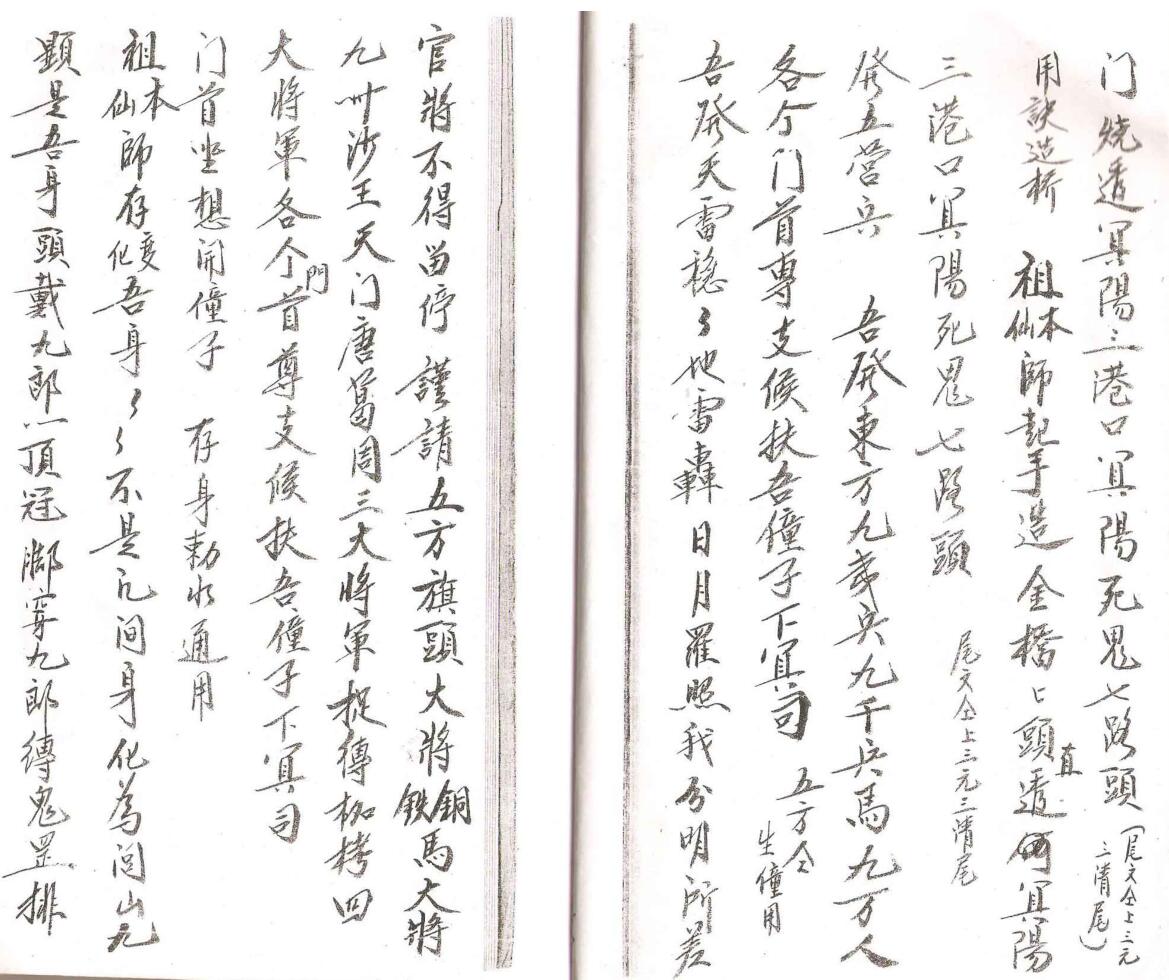 门燒透冥陽三港口冥陽死鬼七路頭（尾文仝上三元三清尾）
用訣造桥　祖本仙師起手造金橋匕頭直透何冥陽
三港口冥陽死鬼七路頭　尾文仝上三元三清尾
發五營兵　吾發東方九夷兵九千兵馬九万人
各个门首專支候扶吾僮子下冥司　五方仝　生僮用
吾發天雷稳〻地雷轟日月羅照我分明所差
官將不得留停謹請五方旗頭大將銅鉄馬大將
九州沙王天门唐葛周三大將軍捉縛枷拷四
大將軍各个門首尊支候扶吾僮子下冥司
门首坐想開僮子　存身勅水通用
祖本仙師存變化吾身〻〻不是凡间身化為闾山九
顯是吾身頭戴九郎八頂冠脚穿九郎縛鬼罡排